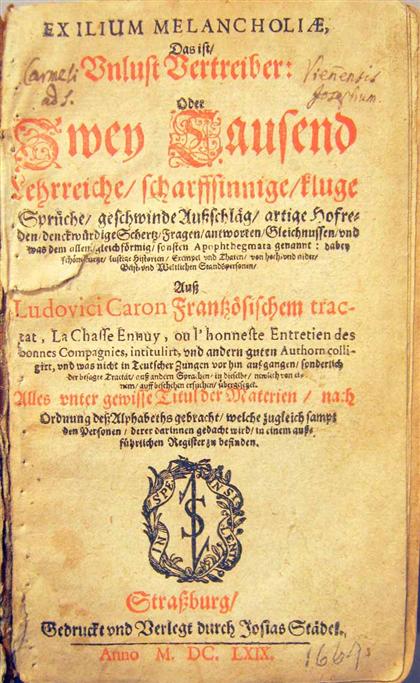 EXILIUM MELANCHOLIÆ,
Das ist/
Vnlust Vertreiber:
Carmeli
ad s.
Viennensis
Josephum.
Oder
Zwey Tausend
Lehrreiche/ scharffsinnige/ kluge
Sprüche/ geschwinde Außschläg/ artige Hofre-
den/ denckwürdige Schertz/ Fragen/ antworten/ Gleichnussen/ vnd
was dem allen/ gleichförmig/ sonsten Apophthegmata genannt: dabey
schöne kurtze/ lustige Historien/ Exempel vnd Thaten/ von hoch vnd nider/
Geist vnd Weltlichen Standspersonen/
Auß
Ludovici Caron Frantzösischem trac-
tat, La Chasse Ennuy, ou l'honneste Entretien des
bonnes Compagnies, intitulirt, vnd andern guten Authorn colli-
girt, vnd was nicht in Teutscher Zungen vorhin außgangen/ sonderlich
der besagte Tractat/ auß andern Sprachen/ in dieselbe/ newlich von ei-
nem/ auff beschehen ersuchen/ übergesetzt.
Alles vnter gewisse Titul der Materien/ nach
Ordnung deß Alphabeths gebracht/ welche zugleich sampt
den Personen/ derer darinnen gedacht wird/ in einem auß-
führlichen Register zu befinden.
IN SPE ET SILENTIO
Straßburg/
Gedruckt vnd Verlegt durch Josias Städel.,
Anno M. DC. LXIX.
1669